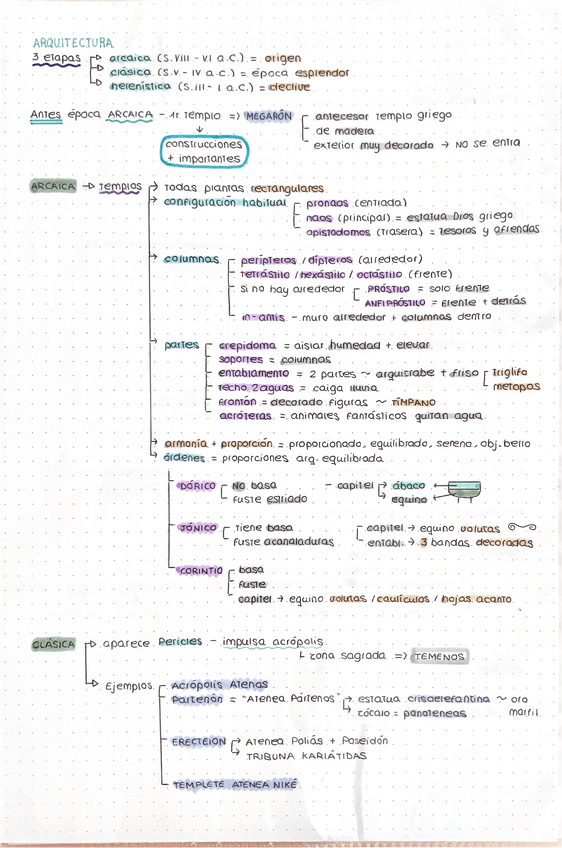 ARQUITECTURA
3 etapas arcaica (S.VIII - VI a.C.) = origen
clásica (S.V - IV a.C.) = época esplendor
helenística (S.III - I a.C.) = declive
Antes época ARCAICA - 1r templo => MEGARÓN antecesor templo griego
de madera
construcciones + importantes
exterior muy decorado → NO se entra
ARCAICA → Templos → todas plantas rectangulares
configuración habitual pronaos (entrada)
naos (principal) = estatua Dios griego
opistodomos (trasera) = tesoros y ofrendas
columnas perípteros / dípteros (alrededor)
tetrástilo / hexástilo / octástilo (frente)
si no hay alrededor PRÓSTILO = solo frente
ANFIPRÓSTILO = frente + detrás
in-antis - muro alrededor + columnas dentro
partes crepidoma = aislar humedad + elevar
soportes = columnas
entablamento = 2 partes ~ arquitrabe + friso triglifo
metopas
techo 2 aguas = caiga lluvia
frontón = decorado figuras ~ TÍMPANO
acróteras = animales fantásticos quitan agua
armonía + proporción = proporcionado, equilibrado, sereno, obj. bello
órdenes = proporciones arq. equilibrada
DÓRICO NO basa - capitel ábaco
fuste estriado equino
JÓNICO tiene basa capitel → equino volutas
fuste acanaladuras entabl. → 3 bandas decoradas
CORINTIO basa
fuste
capitel → equino volutas / caulículos / hojas acanto
CLÁSICA aparece Pericles - impulsa acrópolis
zona sagrada => TEMENOS
Ejemplos Acrópolis Atenas
Partenón = "Atenea Pártenos" → estatua crisoelefantina ~ oro
zócalo = panateneas marfil
ERECTEION Atenea Poliás + Poseidón
TRIBUNA KARIÁTIDAS
TEMPLETE ATENEA NIKÉ